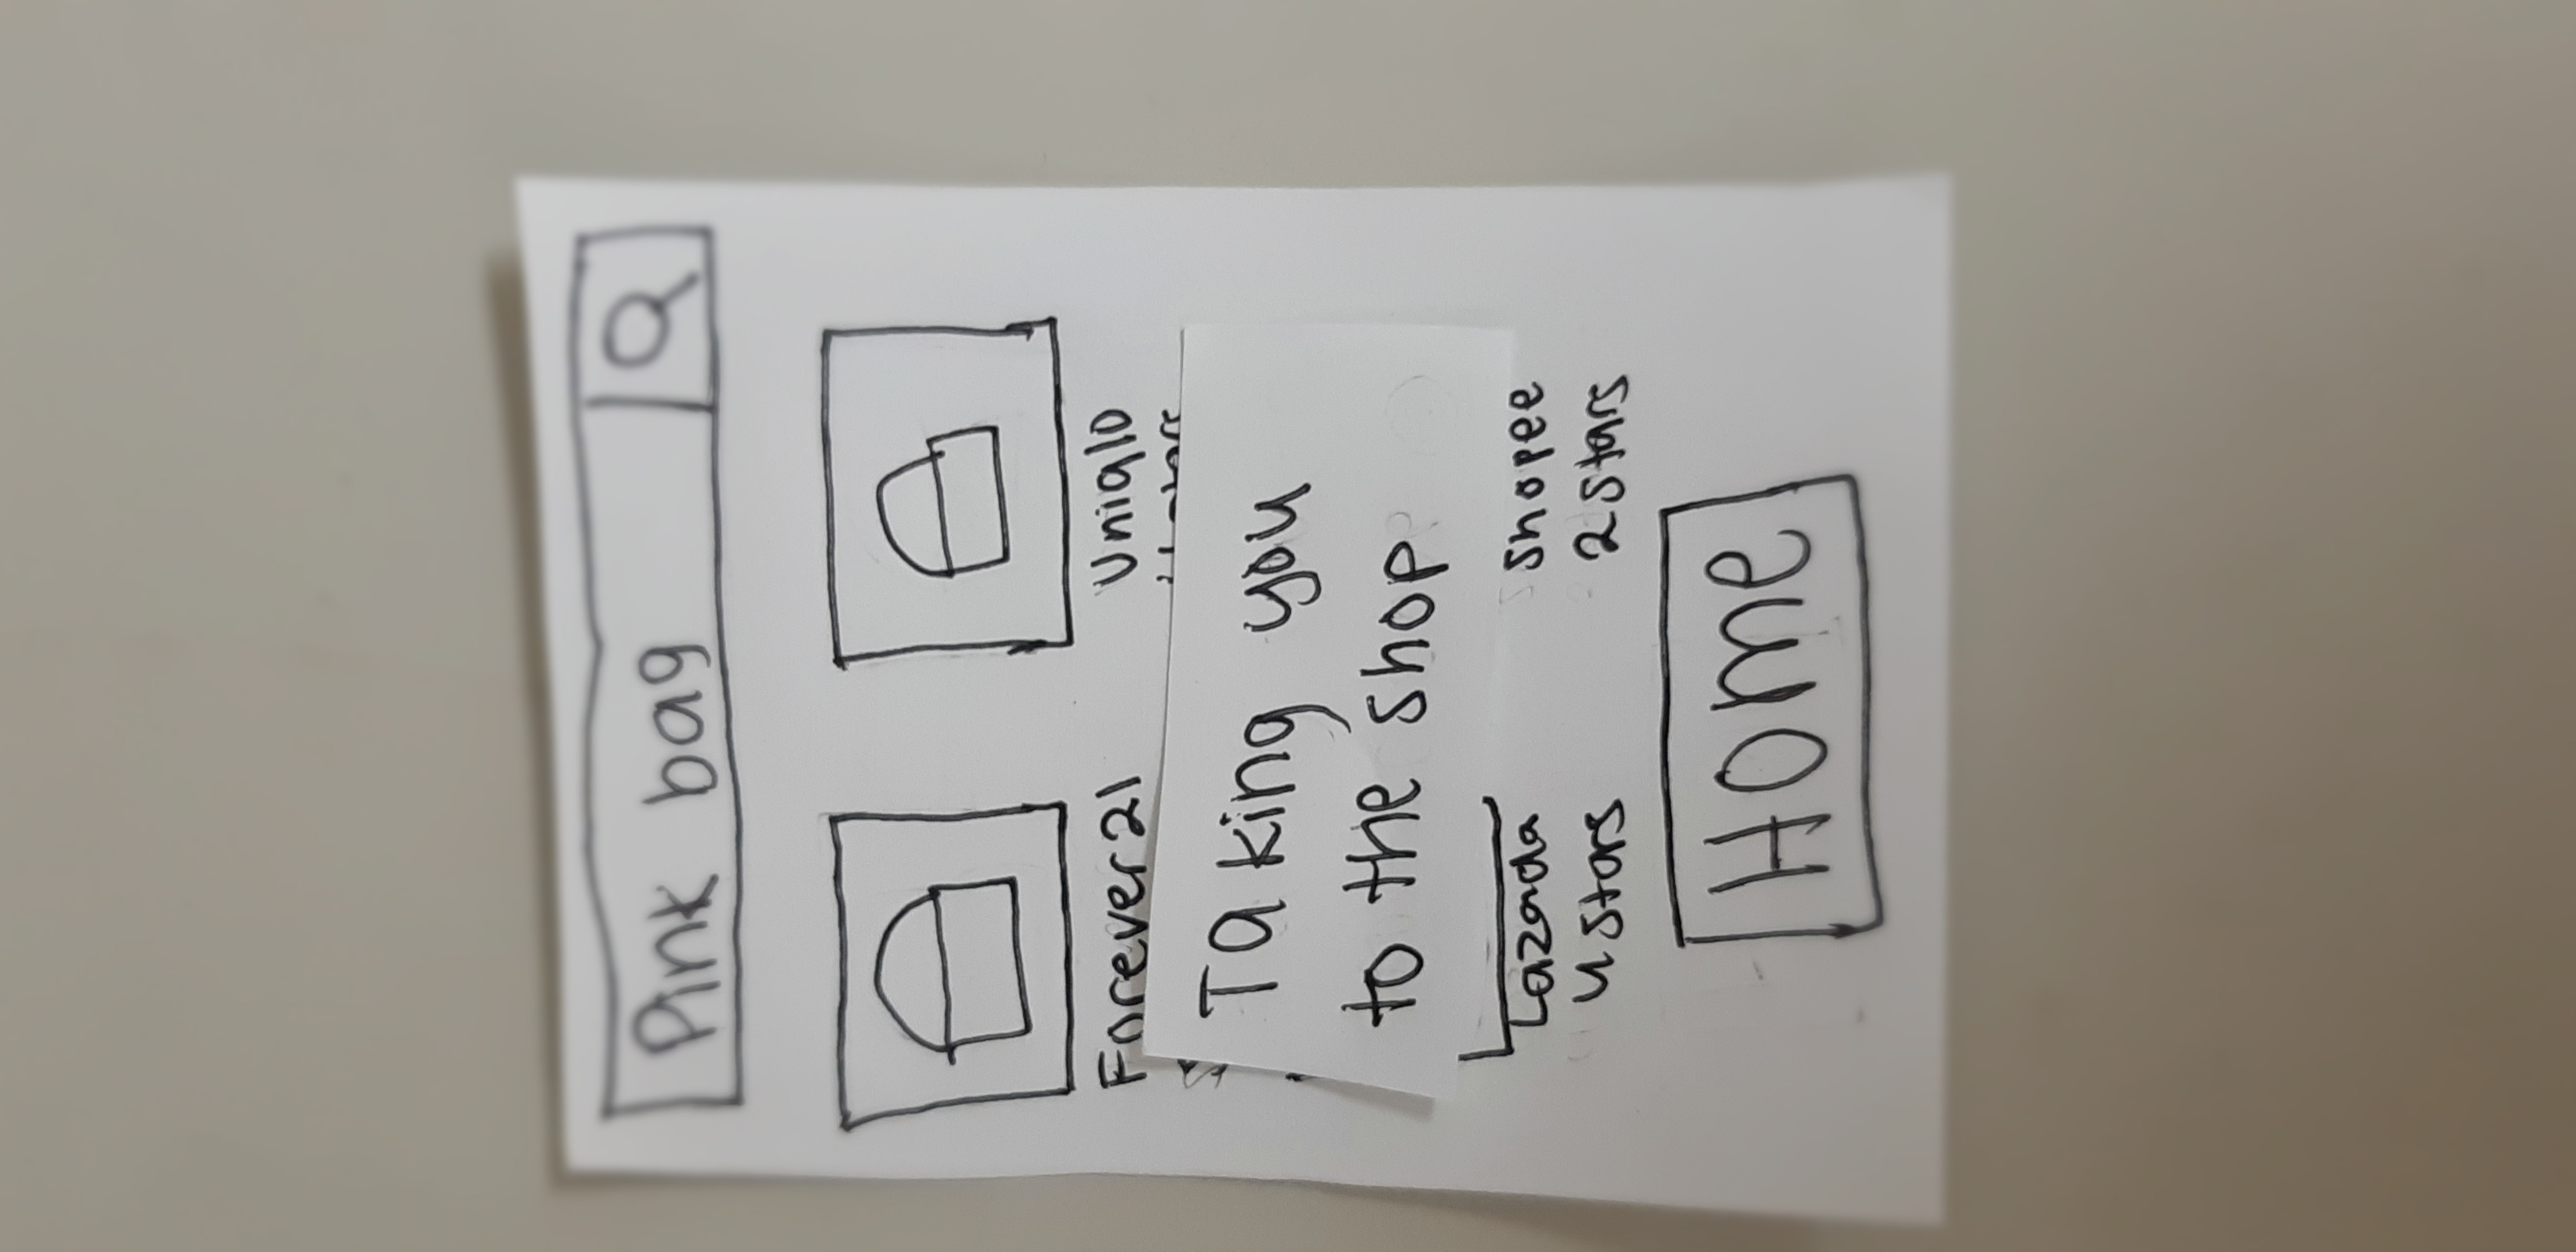 Pink bag
Forever21
Uniqlo
Taking you
to the shop
Lazada
Shopee
4 Stars
2 Stars
Home